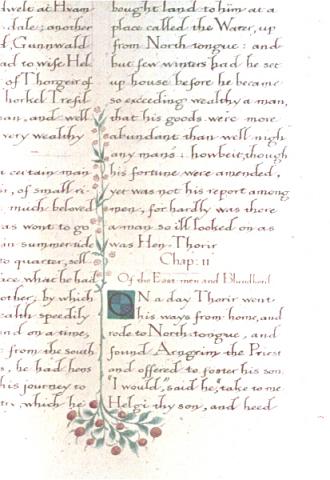 dwelt at Hvam
dale; another
d, Gunnwald
ad to wife Hel
of Thorgeir of
horkel Trefil
an, and well
very wealthy
a certain man
r, of small ri
much beloved
as wont to go
in summertide
to quarter, sell
face what he had
other, by which
ealth speedily
nd on a time,
from the south
s, he had hens
his journey to
which he
bought land to him at a
place called the Water, up
from North-tongue: and
but few winters had he set
up house before he became
so exceeding wealthy a man,
that his goods were more
abundant than well-nigh
any man's: howbeit, though
his fortune were amended,
yet was not his report among
men, for hardly was there
a man so ill looked on as
was Hen-Thorir
Chap: II
Of the East-men and Blundketil
ON a day Thorir went
his ways from home, and
rode to North-tongue, and
found Arngrim the Priest
and offered to foster his son
"I would," said he, "take to me
Helgi thy son, and heed